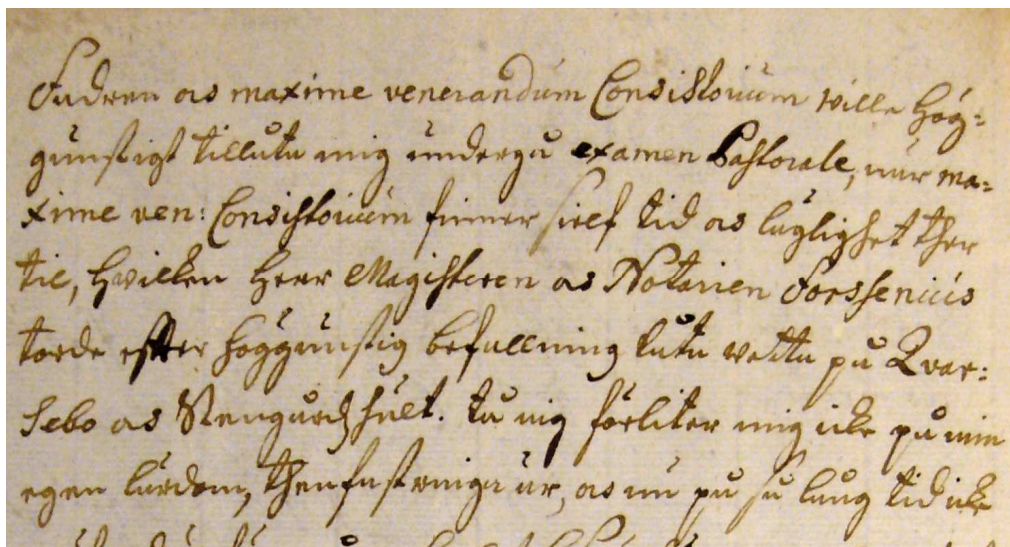 Fadren os maxime venerandum Consistorium wille hög=
gunstigt tillåta mig undergå examen Pastorale, når ma=
xime ven: Consistorium finner sielf tid os läglighet ther
til, hwilken Herr Magisteren os Notarien Forssenius
torde efter höggunstig befallning låta vetta på Qvar=
sebo os Stengårdzhult. tå iag förliter mig icke på min
egen lärdom, then fast ringa är, os nu på så lång tid icke